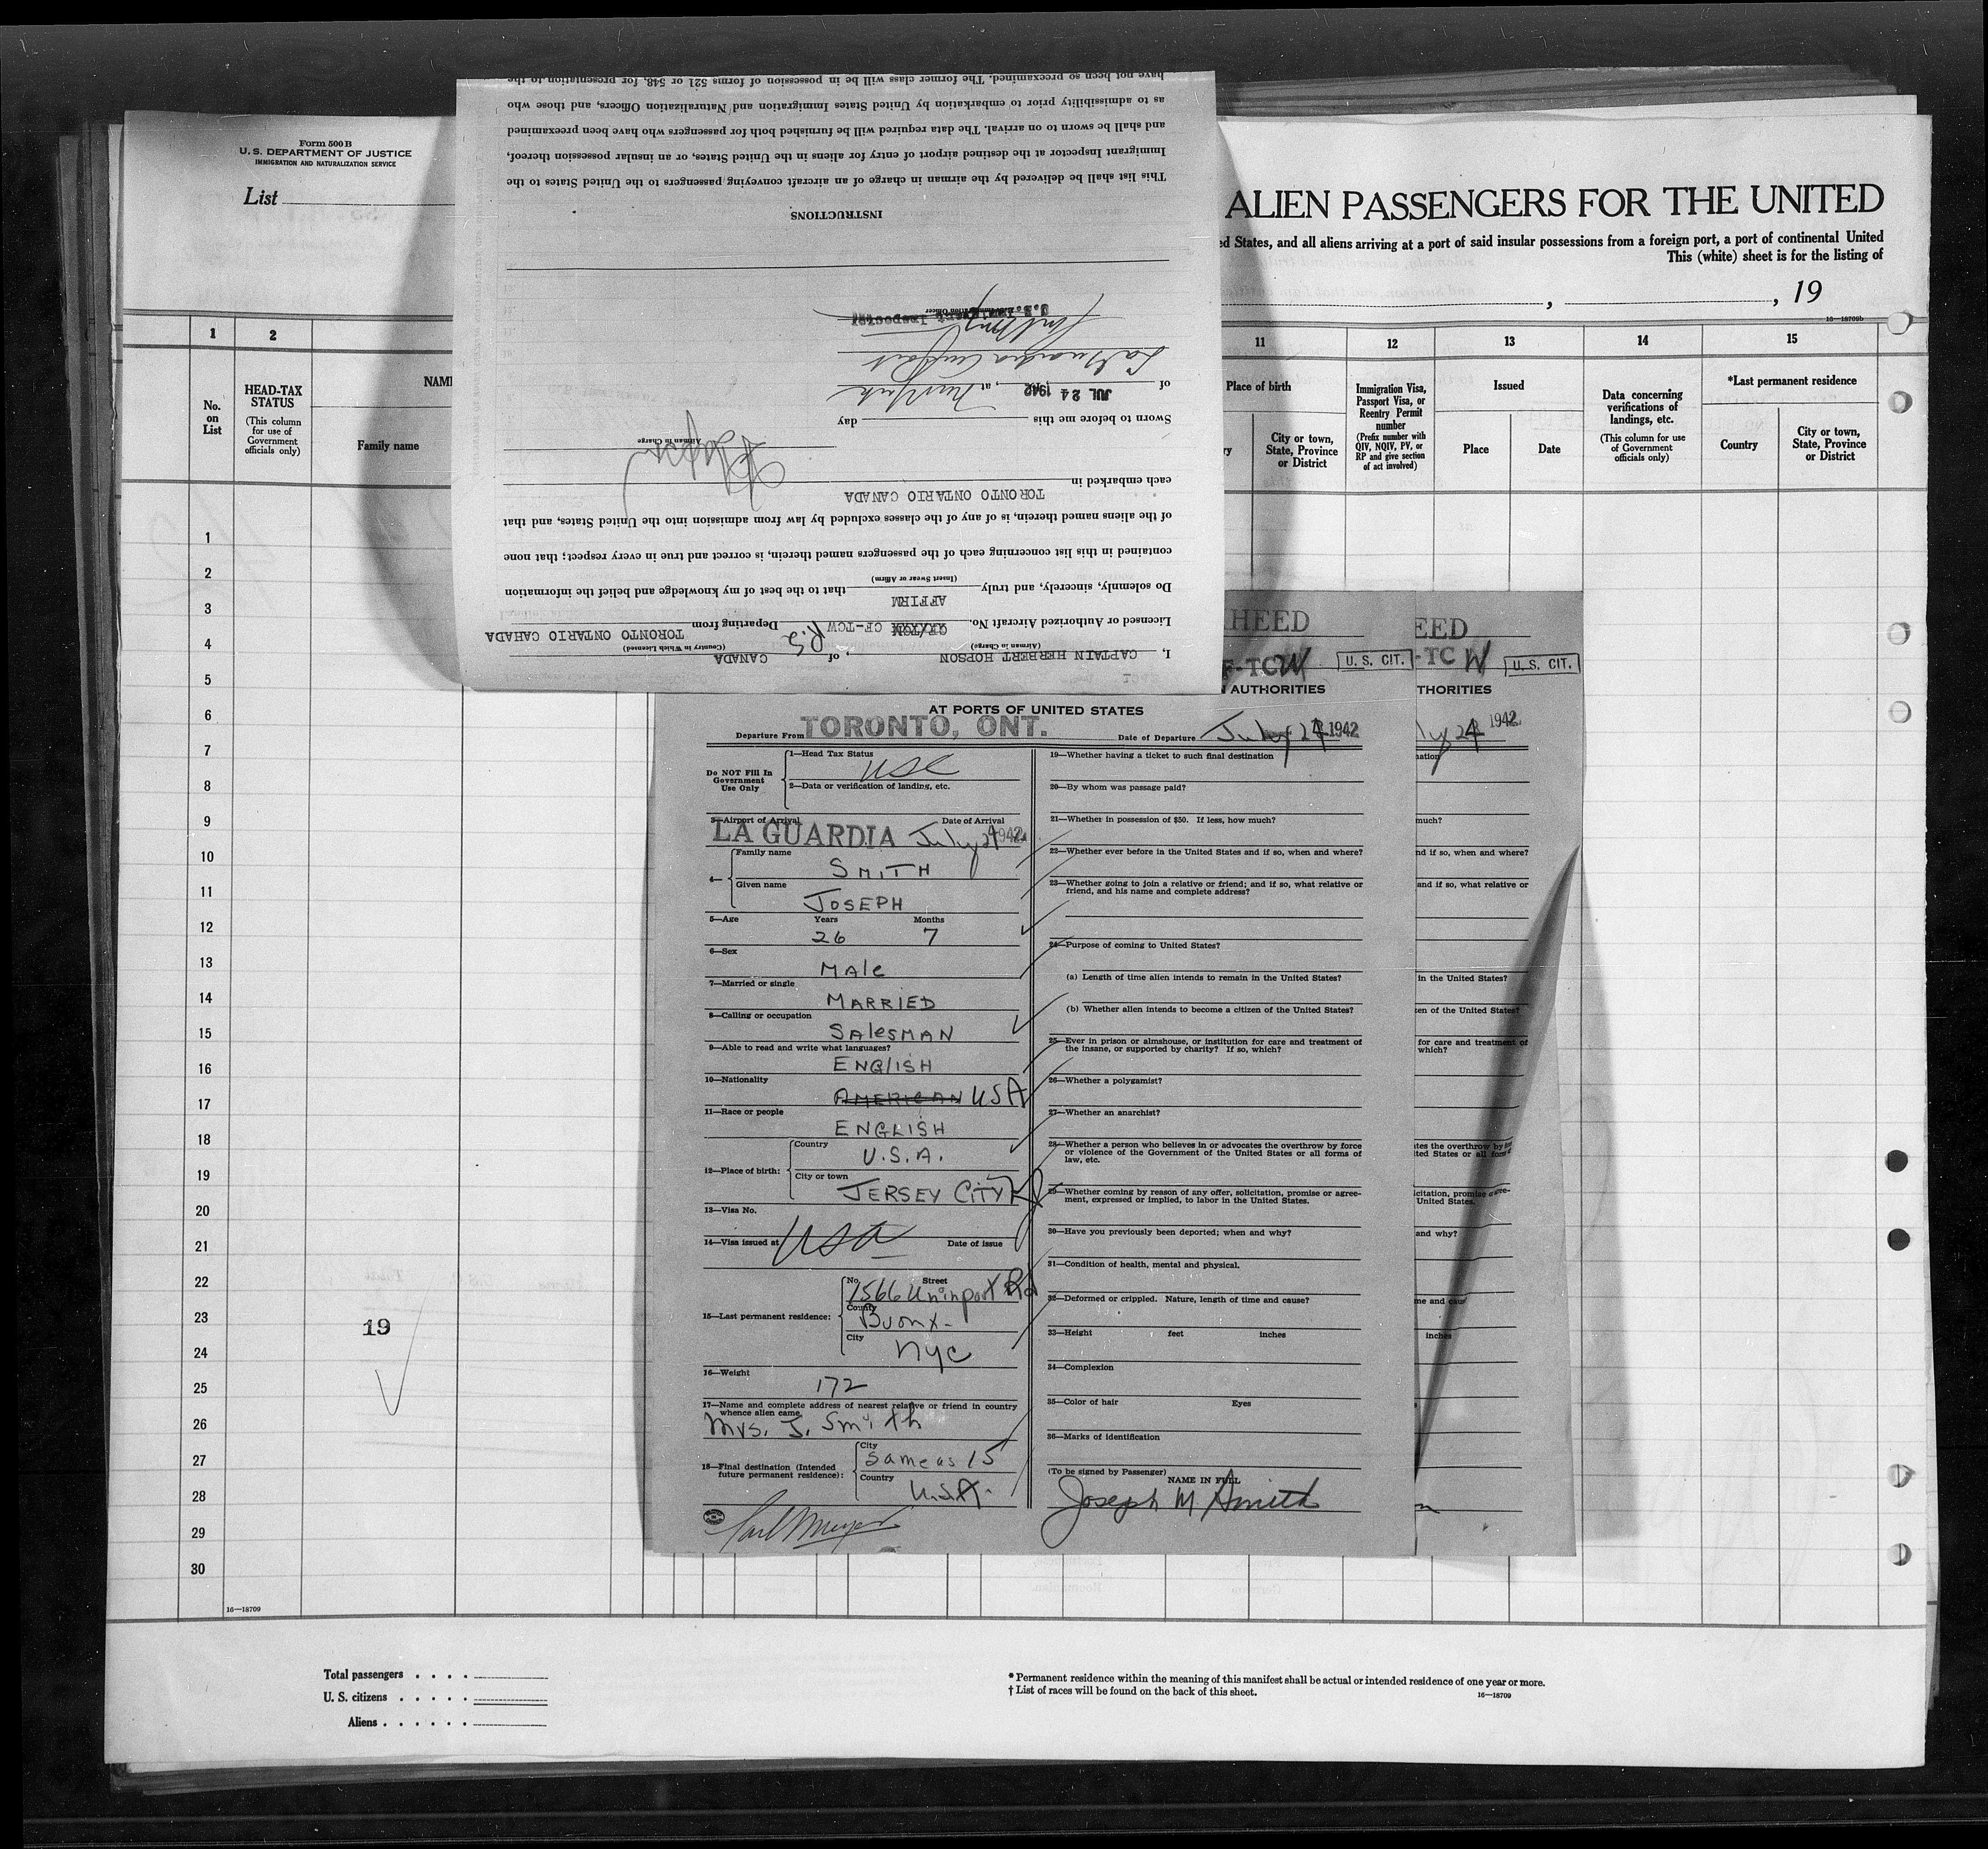 Form 500 B
U. S. DEPARTMENT OF JUSTICE
IMMIGRATION AND NATURALIZATION SERVICE
List
ALIEN PASSENGERS FOR THE UNITED
ed States, and all aliens arriving at a port of said insular possessions from a foreign port, a port of continental United
This (white) sheet is for the listing of
, , 19
16—18709b
1 2 11 12 13 14 15
No. on List
HEAD-TAX STATUS
(This column for use of Government officials only)
NAME
Family name
Place of birth
City or town, State, Province or District
Immigration Visa, Passport Visa, or Reentry Permit number
(Prefix number with QIV, NQIV, PV, or RP and give section of act involved)
Issued
Place
Date
Data concerning verifications of landings, etc.
(This column for use of Government officials only)
*Last permanent residence
Country
City or town, State, Province or District
1
2
3
4
5
6
7
8
9
10
11
12
13
14
15
16
17
18
19
20
21
22
23
24
25
26
27
28
29
30
19
16—18709
Total passengers
U. S. citizens
Aliens
* Permanent residence within the meaning of this manifest shall be actual or intended residence of one year or more.
† List of races will be found on the back of this sheet.
16—18709
I, CAPTAIN HERBERT HOPSON, of CANADA
(Airman in Charge)
(Country in Which Licensed)
Licensed or Authorized Aircraft No. CF-TCW Departing from TORONTO ONTARIO CANADA
Do solemnly, sincerely, and truly AFFIRM that to the best of my knowledge and belief the information
(Insert Swear or Affirm)
contained in this list concerning each of the passengers named therein, is correct and true in every respect; that none
of the aliens named therein, is of any of the classes excluded by law from admission into the United States, and that
each embarked in TORONTO ONTARIO CANADA
Airman in Charge
Sworn to before me this day
of JUL 24 1942, at New York
La Guardia Airport
U.S. Immigrant Inspector
Immigration Officer
INSTRUCTIONS
This list shall be delivered by the airman in charge of an aircraft conveying passengers to the United States to the
Immigrant Inspector at the destined airport of entry for aliens in the United States, or an insular possession thereof,
and shall be sworn to on arrival. The data required will be furnished both for passengers who have been preexamined
as to admissibility prior to embarkation by United States Immigration and Naturalization Officers, and those who
have not been so preexamined. The former class will be in possession of forms 521 or 548, for presentation to the
HEED
F-TCW
U. S. CIT.
AUTHORITIES
AT PORTS OF UNITED STATES
Departure From TORONTO, ONT.
Date of Departure July 24 1942
Do NOT Fill In Government Use Only
1—Head Tax Status
USC
2—Data or verification of landing, etc.
3—Airport of Arrival
Date of Arrival
LA GUARDIA July 24 1942
4—
Family name
SMITH
Given name
JOSEPH
5—Age Years Months
26 7
6—Sex
MALE
7—Married or single
MARRIED
8—Calling or occupation
SALESMAN
9—Able to read and write what languages?
ENGLISH
10—Nationality
AMERICAN USA
11—Race or people
ENGLISH
12—Place of birth:
Country
U.S.A.
City or town
JERSEY CITY NJ
13—Visa No.
14—Visa issued at Date of issue
USA
15—Last permanent residence:
No. Street
1566 Unionport Rd
County
Bronx
City
NYC
16—Weight
172
17—Name and complete address of nearest relative or friend in country whence alien came
Mrs. J. Smith
18—Final destination (Intended future permanent residence):
City
Same as 15
Country
U.S.A.
19—Whether having a ticket to such final destination
20—By whom was passage paid?
21—Whether in possession of $50. If less, how much?
22—Whether ever before in the United States and if so, when and where?
23—Whether going to join a relative or friend; and if so, what relative or
friend, and his name and complete address?
24—Purpose of coming to United States?
(a) Length of time alien intends to remain in the United States?
(b) Whether alien intends to become a citizen of the United States?
25—Ever in prison or almshouse, or institution for care and treatment of
the insane, or supported by charity? If so, which?
26—Whether a polygamist?
27—Whether an anarchist?
28—Whether a person who believes in or advocates the overthrow by force
or violence of the Government of the United States or all forms of
law, etc.
29—Whether coming by reason of any offer, solicitation, promise or agree-
ment, expressed or implied, to labor in the United States.
30—Have you previously been deported; when and why?
31—Condition of health, mental and physical.
32—Deformed or crippled. Nature, length of time and cause?
33—Height feet inches
34—Complexion
35—Color of hair Eyes
36—Marks of identification
(To be signed by Passenger)
NAME IN FULL
Joseph M Smith
EED
-TC W
U. S. CIT.
THORITIES
ly 24 1942
nation
much?
nd if so, when and where?
and if so, what relative or
in the United States?
zen of the United States?
for care and treatment of
which?
ates the overthrow by
ited States or all forms
icitation, promise
United States.
and why?
me and cause
inches